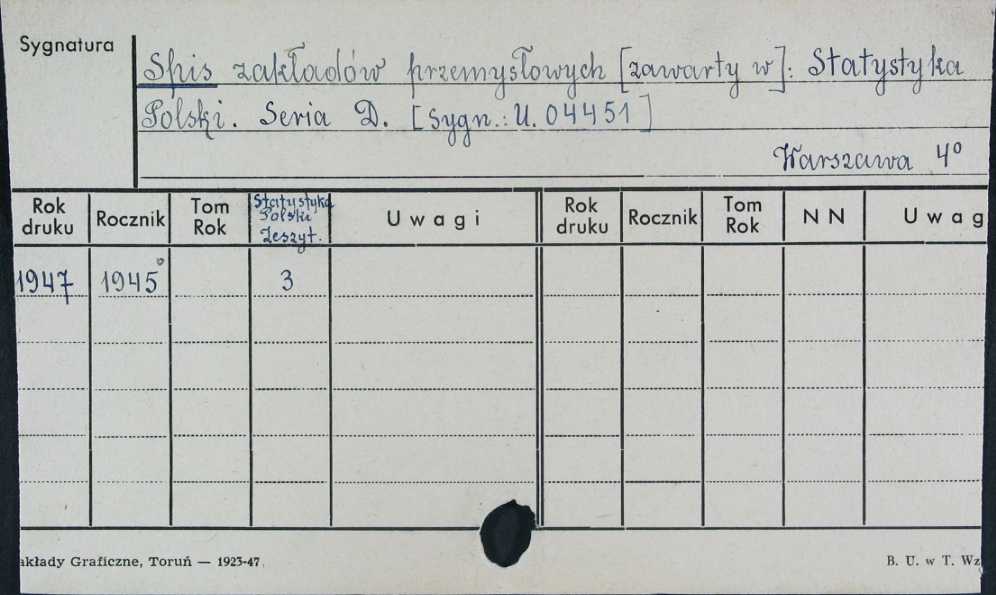 Sygnatura
Spis zakładów przemysłowych [zawarty w]: Statystyka
Polski. Seria D. [Sygn.: U. 04451]
Warszawa 4°
Rok druku Rocznik Tom Rok Statystyka Polski Zeszyt. Uwagi Rok druku Rocznik Tom Rok NN Uwag
1947 1945° 3
akłady Graficzne, Toruń — 1923-47
B. U. w T. Wz